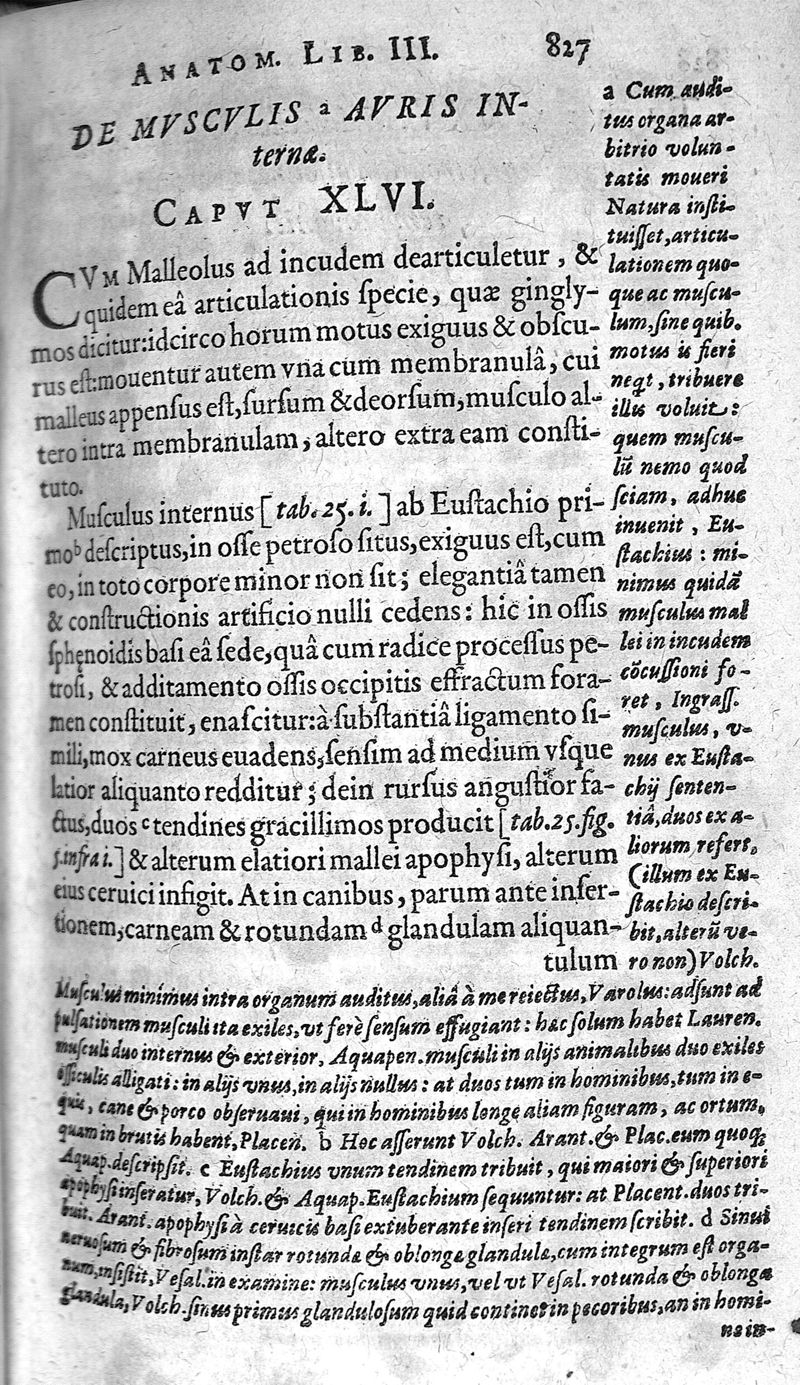 ANATOM. LIB. III. 827
DE MVSCVLIS a AVRIS IN-
ternæ.
CAPVT XLVI.
CVM Malleolus ad incudem dearticuletur, &
quidem eâ articulationis specie, quæ gingly-
mos dicitur: idcirco horum motus exiguus & obscu-
rus est: mouentur autem vna cum membranulâ, cui
malleus appensus est, sursum & deorsum, musculo al-
tero intra membranulam, altero extra eam consti-
tuto.
Musculus internus [tab. 25. i.] ab Eustachio pri-
mo b descriptus, in osse petroso situs, exiguus est, cum
eo, in toto corpore minor non sit; elegantiâ tamen
& constructionis artificio nulli cedens: hic in ossis
sphęnoidis basi eâ sede, quâ cum radice processus pe-
trosi, & additamento ossis occipitis effractum fora-
men constituit, enascitur: à substantiâ ligamento si-
mili, mox carneus euadens, sensim ad medium vsque
latior aliquanto redditur; dein rursus angustior fa-
ctus, duos c tendines gracillimos producit [tab. 25. fig.
5. infra i.] & alterum elatiori mallei apophysi, alterum
eius ceruici infigit. At in canibus, parum ante inser-
tionem, carneam & rotundam d glandulam aliquan-
tulum
a Cum audi-
tus organa ar-
bitrio volun-
tatis moueri
Natura insti-
tuisset, articu-
lationem quo-
que ac muscu-
lum, sine quib.
motus is fieri
neqt, tribuere
illis voluit:
quem muscu-
lū nemo quod
sciam, adhuc
inuenit, Eu-
stachius: mi-
nimus quidā
musculus mal
lei in incudem
cōcussioni fo-
ret, Ingrass.
musculus, v-
nus ex Eusta-
chij senten-
tiâ, duos ex a-
liorum refert,
(illum ex Eu-
stachio descri-
bit, alterū ve-
ro non) Volch.
Musculus minimus intra organum auditus, aliâ à me reiectus, Varolus: adsunt ad
pulsationem musculi ita exiles, vt ferè sensum effugiant: hæc solum habet Lauren.
musculi duo internus & exterior, Aquapen. musculi in alijs animalibus duo exiles
ossiculis alligati: in alijs vnus, in alijs nullus: at duos tum in hominibus, tum in e-
quis, cane & porco obseruaui, qui in hominibus longe aliam figuram, ac ortum,
quam in brutis habent, Placen. b Hoc asserunt Volch. Arant. & Plac. eum quoq;
Aquap. descripsit. c Eustachius vnum tendinem tribuit, qui maiori & superiori
apophysi inseratur, Volch. & Aquap. Eustachium sequuntur: at Placent. duos tri-
buit. Arant. apophysi à ceruicis basi extuberante inseri tendinem scribit. d Sinui
neruosum & fibrosum instar rotundæ & oblongæ glandulæ, cum integrum est orga-
num, insistit, Vesal. in examine: musculus vnus, vel vt Vesal. rotunda & oblonga
glandula, Volch. sinus primus glandulosum quid continet in pecoribus, an in homi-
ne in-